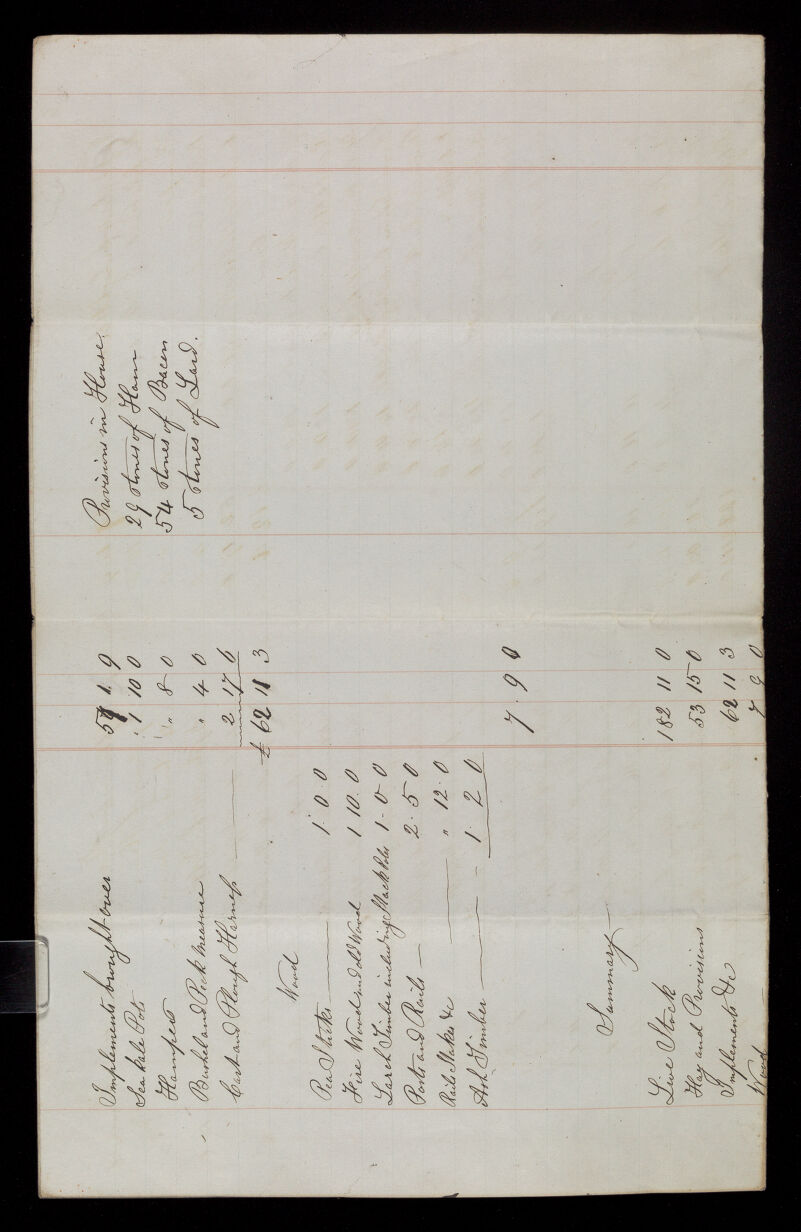 Implements brought over 57 1 9
Sea kale Pots 1 10 0
Hampers " 8 0
Bushel and Peck Measure " 4 0
Cart and Plough Harness 2 17 6
£ 62 11 3
Wood
Pea Stakes 1. 0. 0
Fire Wood and old Wood 1 10. 0
Larch Timber including Stack Poles 1 - 0 - 0
Posts and Rails 2. 5 0
Rails Stakes &c " 12. 0
Ash Timber 1. 2. 0
7. 9 0
Summary
Live Stock 182 11 0
Hay and Provisions 53 15 0
Implements &c 62 11 3
Wood 7 9 0
Provisions in House.
29 stones of Ham
54 stones of Bacon
5 stones of Lard.